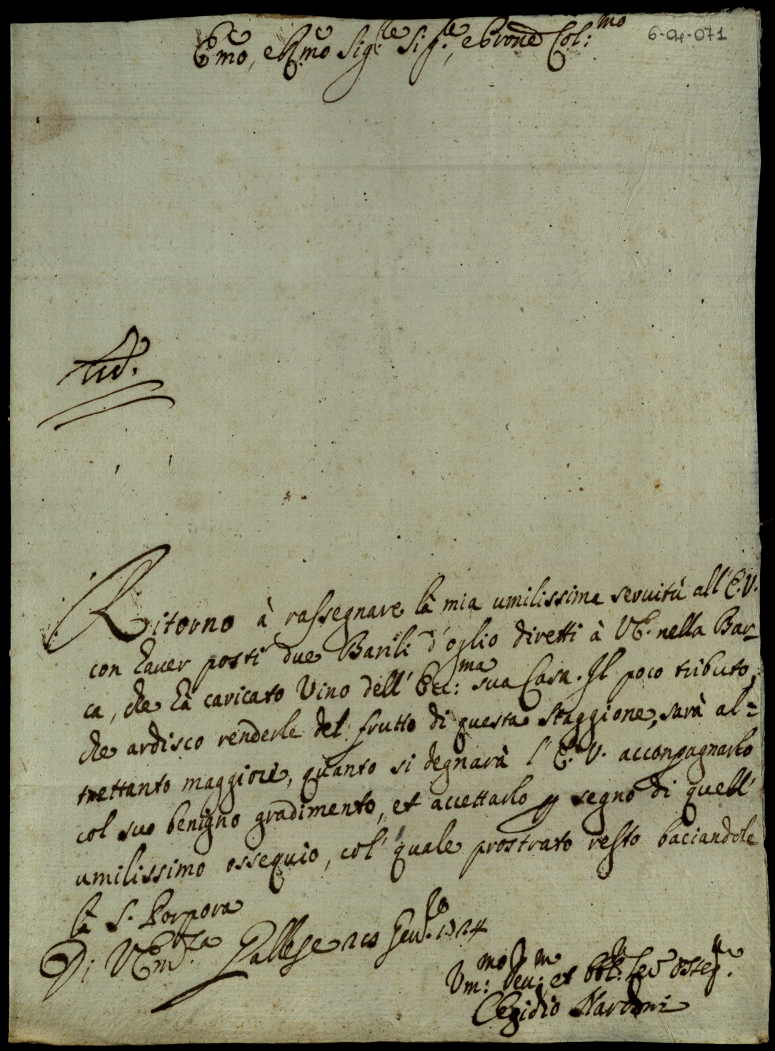 Em̃o, e R.mo Sig.re Sig.re, e Prone Col:mo
6-04-071
Aud.
Ritorno à rassegnare la mia umilissima seruitù all' E.V.
con hauer posti due Barili d'oglio diretti à VE. nella Bar-
ca, che hà caricato Vino dell' Ecc:ma sua Casa. Il poco tributo,
che ardisco renderle del frutto di questa staggione, sarà al=
trettanto maggiore, quanto si degnarà l' E.V. accompagnarlo
col suo benigno gradimento, et accettarlo p segno di quell'
umilissimo ossequio, col' quale prostrato resto baciandole
la S. Porpora
Di VEm.za Gallese Gen.ro
Vm:mo Seu:, et
Egidio Nardoni